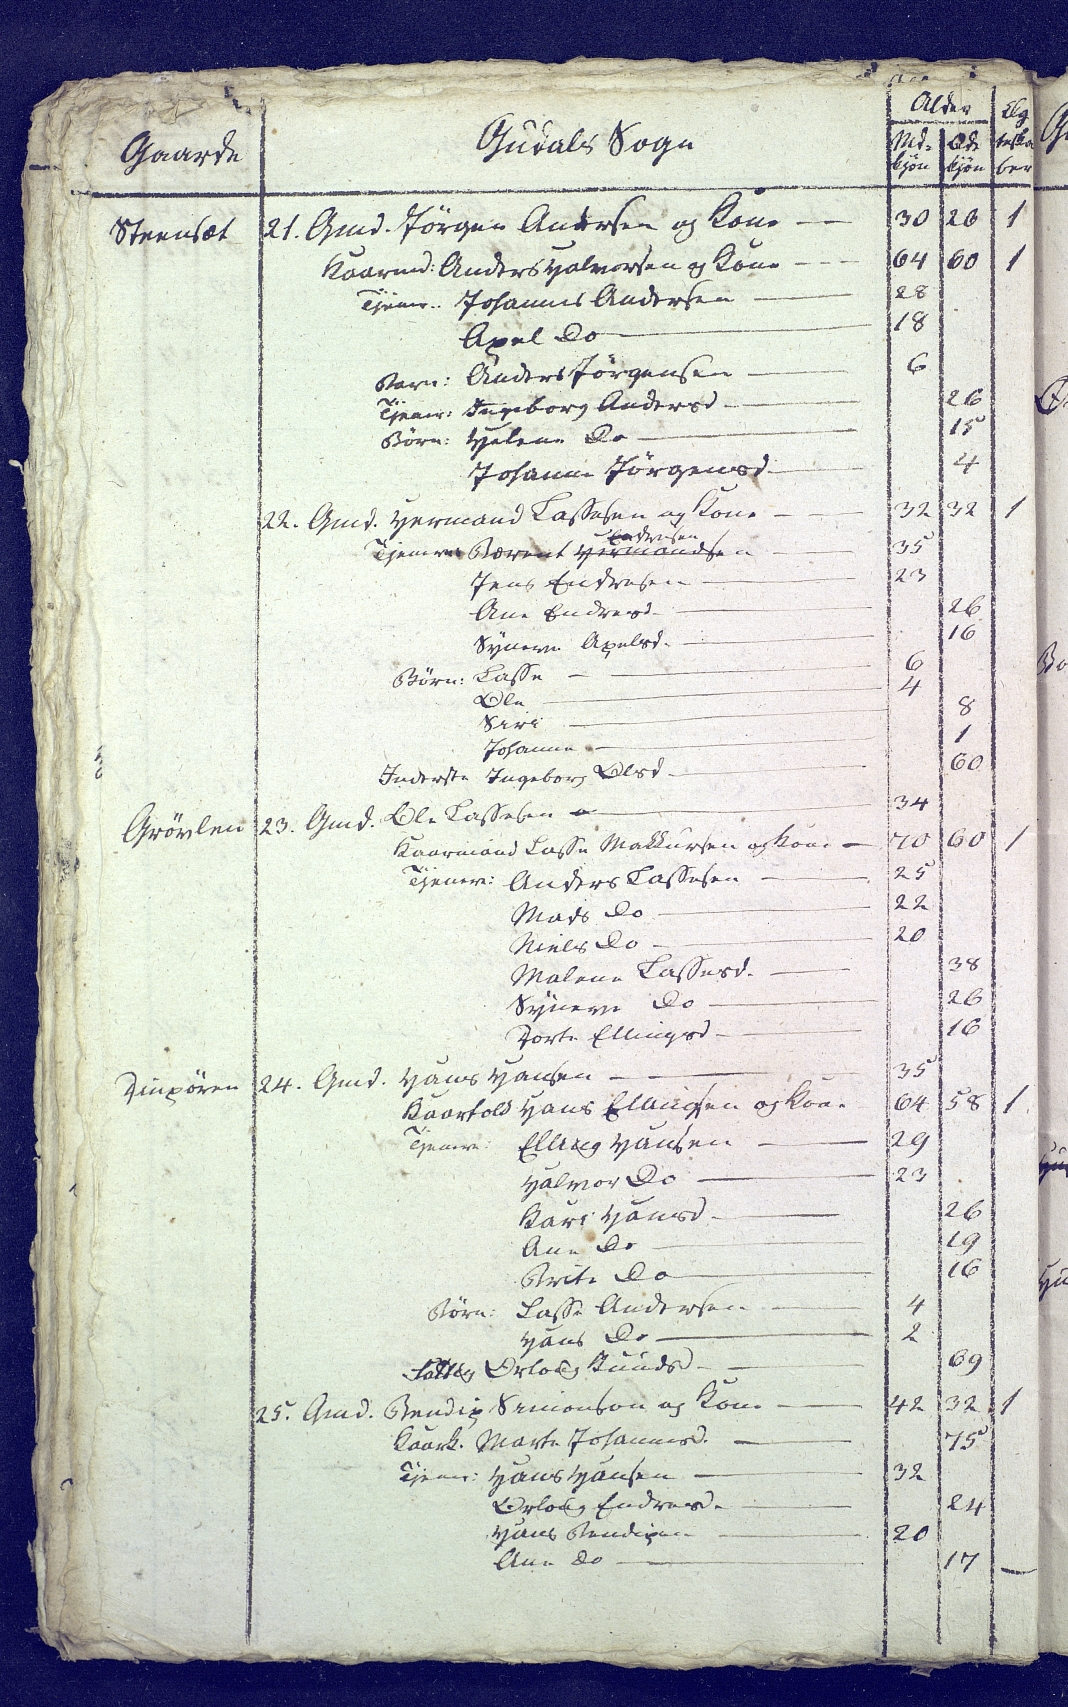 Gaarde Gudals Sogn Alder Mdkjön Qdekjön Eg teska ber
Steensæt 21. Gmd. Jörgen Andersen og Kone 30 26 1
Kaarmd: Anders Halvorsen og Kone 64 60 1
Tjener: Johannes Andersen 28
Axel Do 18
Barn: Anders Jörgensen 6
Tjener: Ingeborg Andersd 26
Börn: Helene Do 15
Johanne Jörgensd 4
22. Gmd. Hermand Lassesen og Kone 32 32 1
Tjenere Bærent Hermandsen Endresen 35
Jens Endresen 23
Ane Endresd. 26
Synneve Axelsd. 16
Börn: Lasse 6
Ole 4
Siri 8
Johanne 1
Inderste Ingeborg Olsd. 60
Grövlen 23. Gmd. Ole Lassesen 34
Kaarmand Lasse Makkursen og Kone 70 60 1
Tjenere: Anders Lassesen 25
Mads Do 22
Niels Do 20
Malene Lassesd. 38
Synneve Do 26
Dorte Ellingsd 16
Dinxören 24. Gmd. Hans Hansen 35
Kaarfold Hans Ellingsen og Kone 64 58 1
Tjenere: Elling Hansen 29
Halvor Do 23
Kari Hansd. 26
Ane Do 19
Brite Do 16
Börn: Lasse Andersen 4
Hans Do 2
Fattig Orloug Knudsd 69
25. Gmd. Bendix Simonson og Kone 42 32 1
Kaark. Marte Johannesd. 75
Tjener: Hans Hansen 32
Orloug Endresd. 24
Hans Bendixen 20
Ane do 17